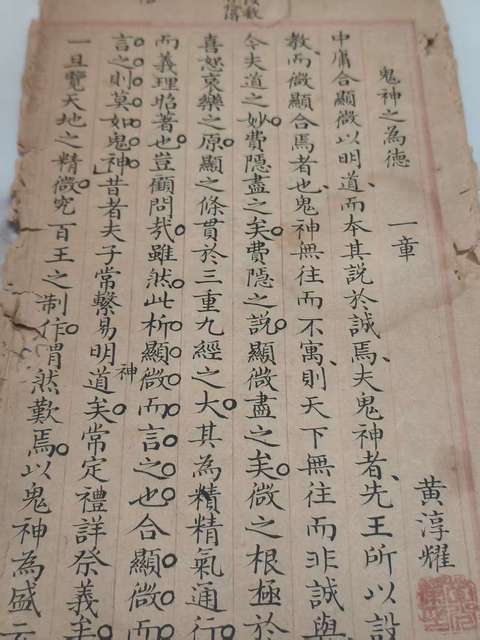 鬼神之為德 一章
黃淳耀
中庸合顯微以明道而本其說於誠焉夫鬼神者先王所以設
教而微顯合焉者也鬼神無往而不寓則天下無往而非誠與
今夫道之妙費隱盡之矣費隱之說顯微盡之矣微之根極於
喜怒哀樂之原顯之條貫於三重九經之大其為積精氣通行
而義理昭著也豈顧問哉雖然此析顯微而言之也合顯微而
言之則莫如鬼神昔者夫子常繫易明道神矣常定禮詳祭義矣
一旦覽天地之精微究百王之制作喟然歎焉以鬼神為盛云